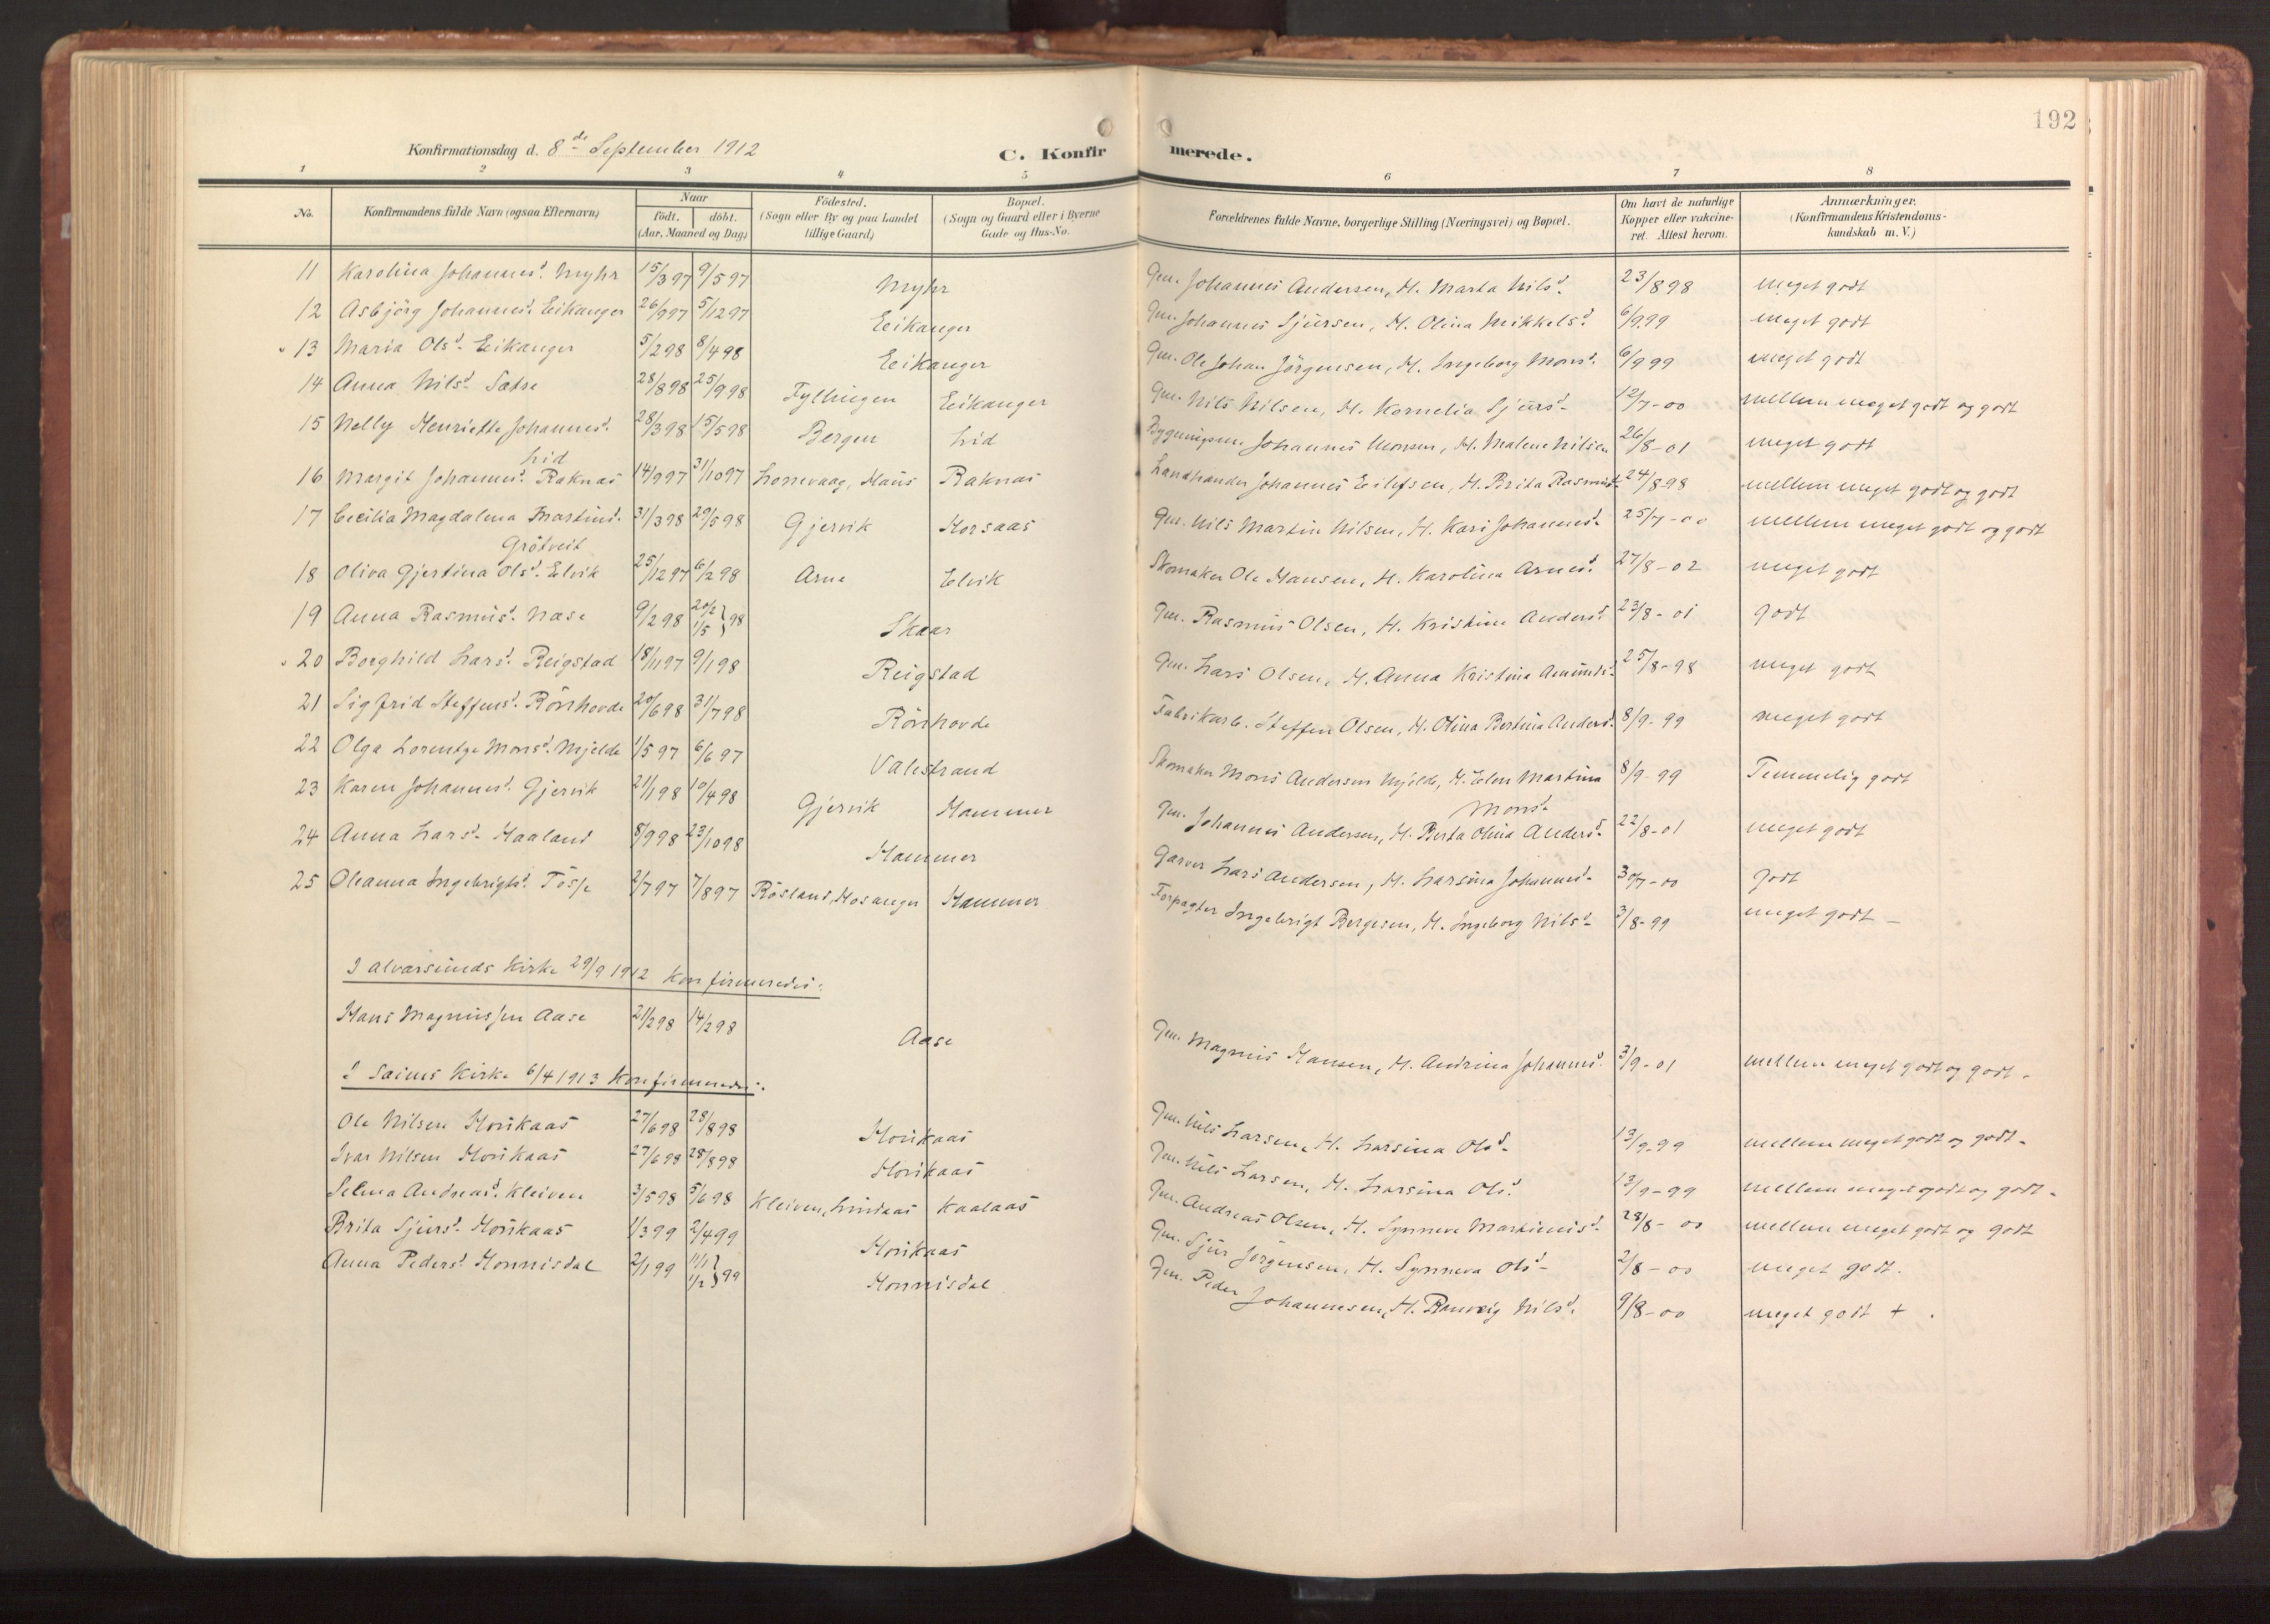 192
Konfirmationsdag d. 8de September 1912
C. Konfirmerede.
1 2 3 4 5 6 7 8
No.
Konfirmandens fulde Navn (ogsaa Efternavn)
Naar
födt. döbt.
(Aar, Maaned og Dag)
Födested.
(Sogn eller By og paa Landet
tillige Gaard)
Bopæl.
(Sogn og Gaard eller i Byerne
Gade og Hus-No.
Forældrenes fulde Navne, borgerlige Stilling (Næringsvei) og Bopæl.
Om havt de naturlige
Kopper eller vakcine-
ret. Attest herom.
Anmærkninger.
(Konfirmandens Kristendoms-
kundskab m. V.)
11 Karolina Johannesd. Myhr 15/3 97 9/5 97 Myhr Gm. Johannes Andersen, H. Marta Nilsd. 23/8 98 meget godt
12 Asbjörg Johannesd. Eikanger 26/9 97 5/12 97 Eikanger Gm. Johannes Sjursen, H. Olina Mikkelsd. 6/9 99 meget godt
13 Maria Olsd. Eikanger 5/2 98 8/4 98 Eikanger Gm. Ole Johan Jörgensen, H. Ingeborg Monsd. 6/9 99 meget godt
14 Anna Nilsd. Sætre 28/8 98 25/9 98 Fyllingen Eikanger Gm. Nils Nilsen, H. Kornelia Sjursd. 12/7-00 mellem meget godt og godt
15 Nelly Henriette Johannesd. 28/3 98 15/5 98 Bergen Lid Bygningsm. Johannes Monsen, H. Malene Nilsen 26/8-01 meget godt
Lid
16 Margit Johannesd. Raknæs 14/9 97 31/10 97 Lonevaag, Haus Raknæs Landhandler Johannes Eilefsen, H. Brita Rasmusd. 24/8 98 mellem meget godt og godt
17 Cecilia Magdalena Martinsd. 31/3 98 29/5 98 Gjervik Horsaas Gm. Nils Martin Nilsen, H. Kari Johannesd. 25/7-00 mellem meget godt og godt
Grötveit
18 Oliva Gjertina Olsd. Elvik 25/12 97 6/2 98 Arne Elvik Skomaker Ole Hansen, H. Karolina Arnesd. 27/8-02 meget godt
19 Anna Rasmusd. Nase 9/2 98 20/2 1/5 } 98 Skaar Gm. Rasmus Olsen, H. Kristine Andersd. 23/8-01 godt
20 Borghild Larsd. Reigstad 18/11 97 9/1 98 Reigstad Gm. Lars Olsen, H. Anna Kristina Amundsd. 25/8-98 meget godt
21 Sigfrid Steffensd. Rönhovde 20/6 98 31/7 98 Rönhovde Fabrikarb. Steffen Olsen, H. Olina Bertina Andersd. 8/9-99 meget godt
22 Olga Lorentze Monsd. Mjelde 1/5 97 6/6 97 Valestrand Skomaker Mons Andersen Mjelde, H. Elen Martina 8/9-99 Temmelig godt
Monsd.
23 Karen Johannesd. Gjervik 21/1 98 10/4 98 Gjervik Hammer Gm. Johannes Andersen, H. Berta Olina Andersd. 22/8-01 meget godt
24 Anna Larsd. Haaland 8/9 98 23/10 98 Hammer Garver Lars Andersen, H. Larsina Johannesd. 30/7-00 godt
25 Oleanna Ingebrigtsd. Tosse 2/7 97 7/8 97 Rösland, Hosanger Hammer Forpagter Ingebrigt Bergesen, H. Ingeborg Nilsd. 3/8-99 meget godt -
I Alvarsunds Kirke 29/9 1912 Konfirmeredes:
Hans Magnussen Aase 21/2 98 14/2 98 Aase Gm. Magnus Hansen, H. Andrina Johannesd. 3/9-01 mellem meget godt og godt.
I Sæims Kirke 6/4 1913 Konfirmeredes:
Ole Nilsen Hovikaas 27/6 98 28/8 98 Hovikaas Gm. Nils Larsen, H. Larsina Olsd. 13/9-99 mellem meget godt og godt.
Ivar Nilsen Hovikaas 27/6 98 28/8 98 Hovikaas Gm. Nils Larsen, H. Larsina Olsd. 13/9-99 mellem meget godt og godt.
Selma Andreasd. Kleiven 3/5 98 5/6 98 Kleiven, Lindaas Kaalaas Gm. Andreas Olsen, H. Synneve Martinusd. 28/8-00 mellem meget godt og godt
Brita Sjursd. Hovikaas 1/3 99 2/4 99 Hovikaas Gm. Sjur Jörgensen, H. Synneva Olsd. 2/8-00 meget godt.
Anna Pedersd. Honnisdal 2/1 99 11/1 1/2 } 99 Honnisdal Gm. Peder Johannesen, H. Ranveig Nilsd. 9/8-00 meget godt +